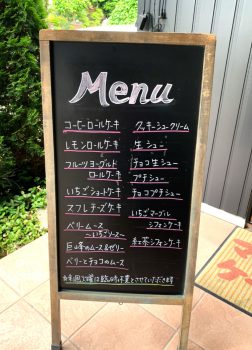 Menu
コーヒーロールケーキ
レモンロールケーキ
フルーツヨーグルト
ロールケーキ
いちごショートケーキ
スフレチーズケーキ
ベリームース
〜いちごソース〜
巨峰のムース&ゼリー
ベリーとチョコのムース
クッキーシュークリーム
生シュー
チョコ生シュー
プチシュー
チョコプチシュー
いちごマーブル
シフォンケーキ
紅茶シフォンケーキ
は臨時休業とさせていただきます